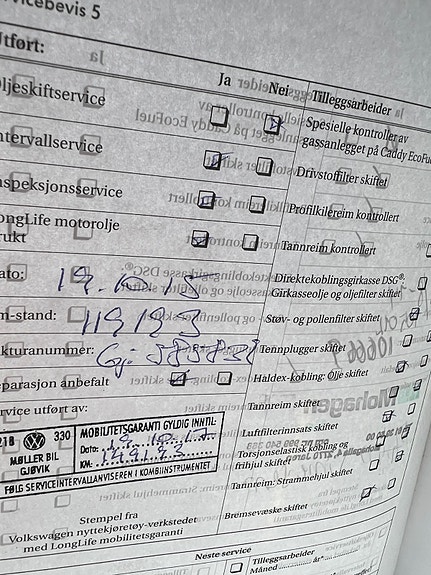 vicebevis 5
Utført:
Ja Nei
Oljeskiftservice
Intervallservice
Inspeksjonsservice
LongLife motorolje
brukt
Dato:
Km-stand: 119193
Fakturanummer:
Reparasjon anbefalt
Service utført av:
218 330
MØLLER BIL
GJØVIK
MOBILITETSGARANTI GYLDIG INNTIL
Dato:
KM:
FØLG SERVICEINTERVALLANVISEREN I KOMBIINSTRUMENTET
Stempel fra
Volkswagen nyttekjøretøy-verkstedet
med LongLife mobilitetsgaranti
Tilleggsarbeider
Spesielle kontroller av
gassanlegget på Caddy EcoFuel
Drivstoffilter skiftet
Profilkilereim kontrollert
Tannreim kontrollert
Direktekoblingsgirkasse DSG®:
Girkasseolje og oljefilter skiftet
Støv- og pollenfilter skiftet
Tennplugger skiftet
Haldex-kobling: Olje skiftet
Tannreim skiftet
Luftfilterinnsats skiftet
Torsjonselastisk kobling og
frihjul skiftet
Tannreim: Strammehjul skiftet
Bremsevæske skiftet
Neste service
Tilleggsarbeider
Måned år